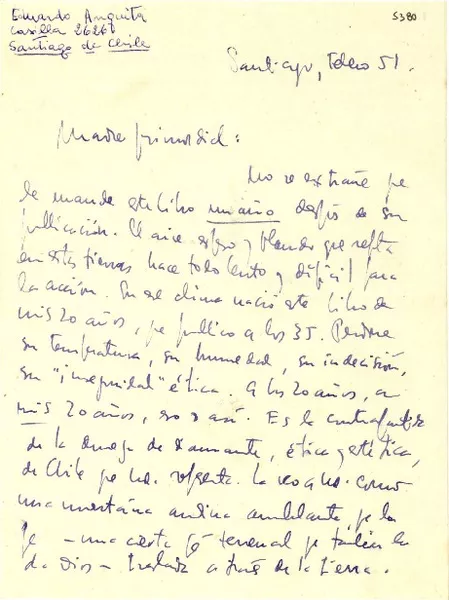 Eduardo Anguita
Casilla 2626
Santiago de Chile
5380
Santiago, Febro 51.
Madre primordial:
No se extrañe que
le mande este libro un año después de su
publicación. El aire espeso y blando que
en estas tierras hace todo lento y difícil para
la acción. En ese clima nació este libro de
mis 20 años, que publico a los 35. Perdone
su temperatura, su humedad, su indecisión,
su "inseguridad" ética. A los 20 años, a
mis 20 años, eso es así. Es la contraparte
de la de diamante, ética y estética,
de Chile que Ud. representa. La veo a Ud. como
una montaña andina ambulante, que la
fe – una cierta fe terrenal que también la
da Dios – traslada a través de la tierra.